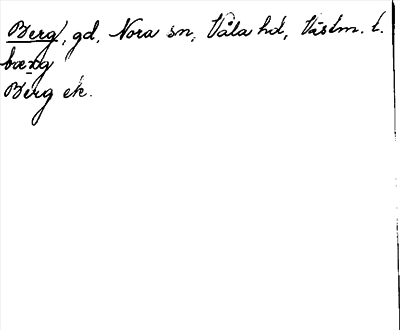 Berg, gd, Nora sn, Våla hd, Västm. l.
bærg
Berg ek.